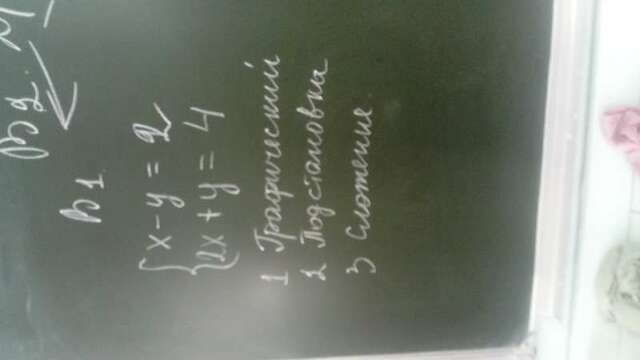 В2. М
В1
x - y = 2
2x + y = 4
1 Графический
2 Подстановки
3 Сложение